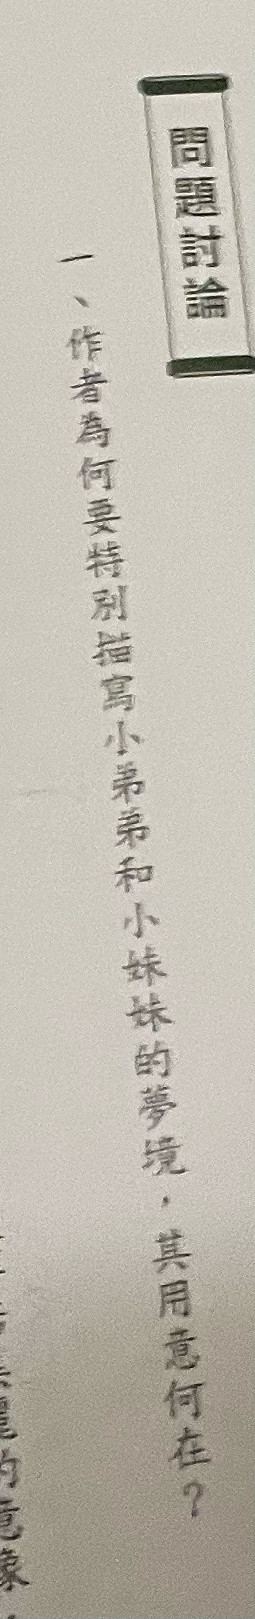 問題討論
一、作者為何要特別描寫小弟弟和小妹妹的夢境，其用意何在？
的意象